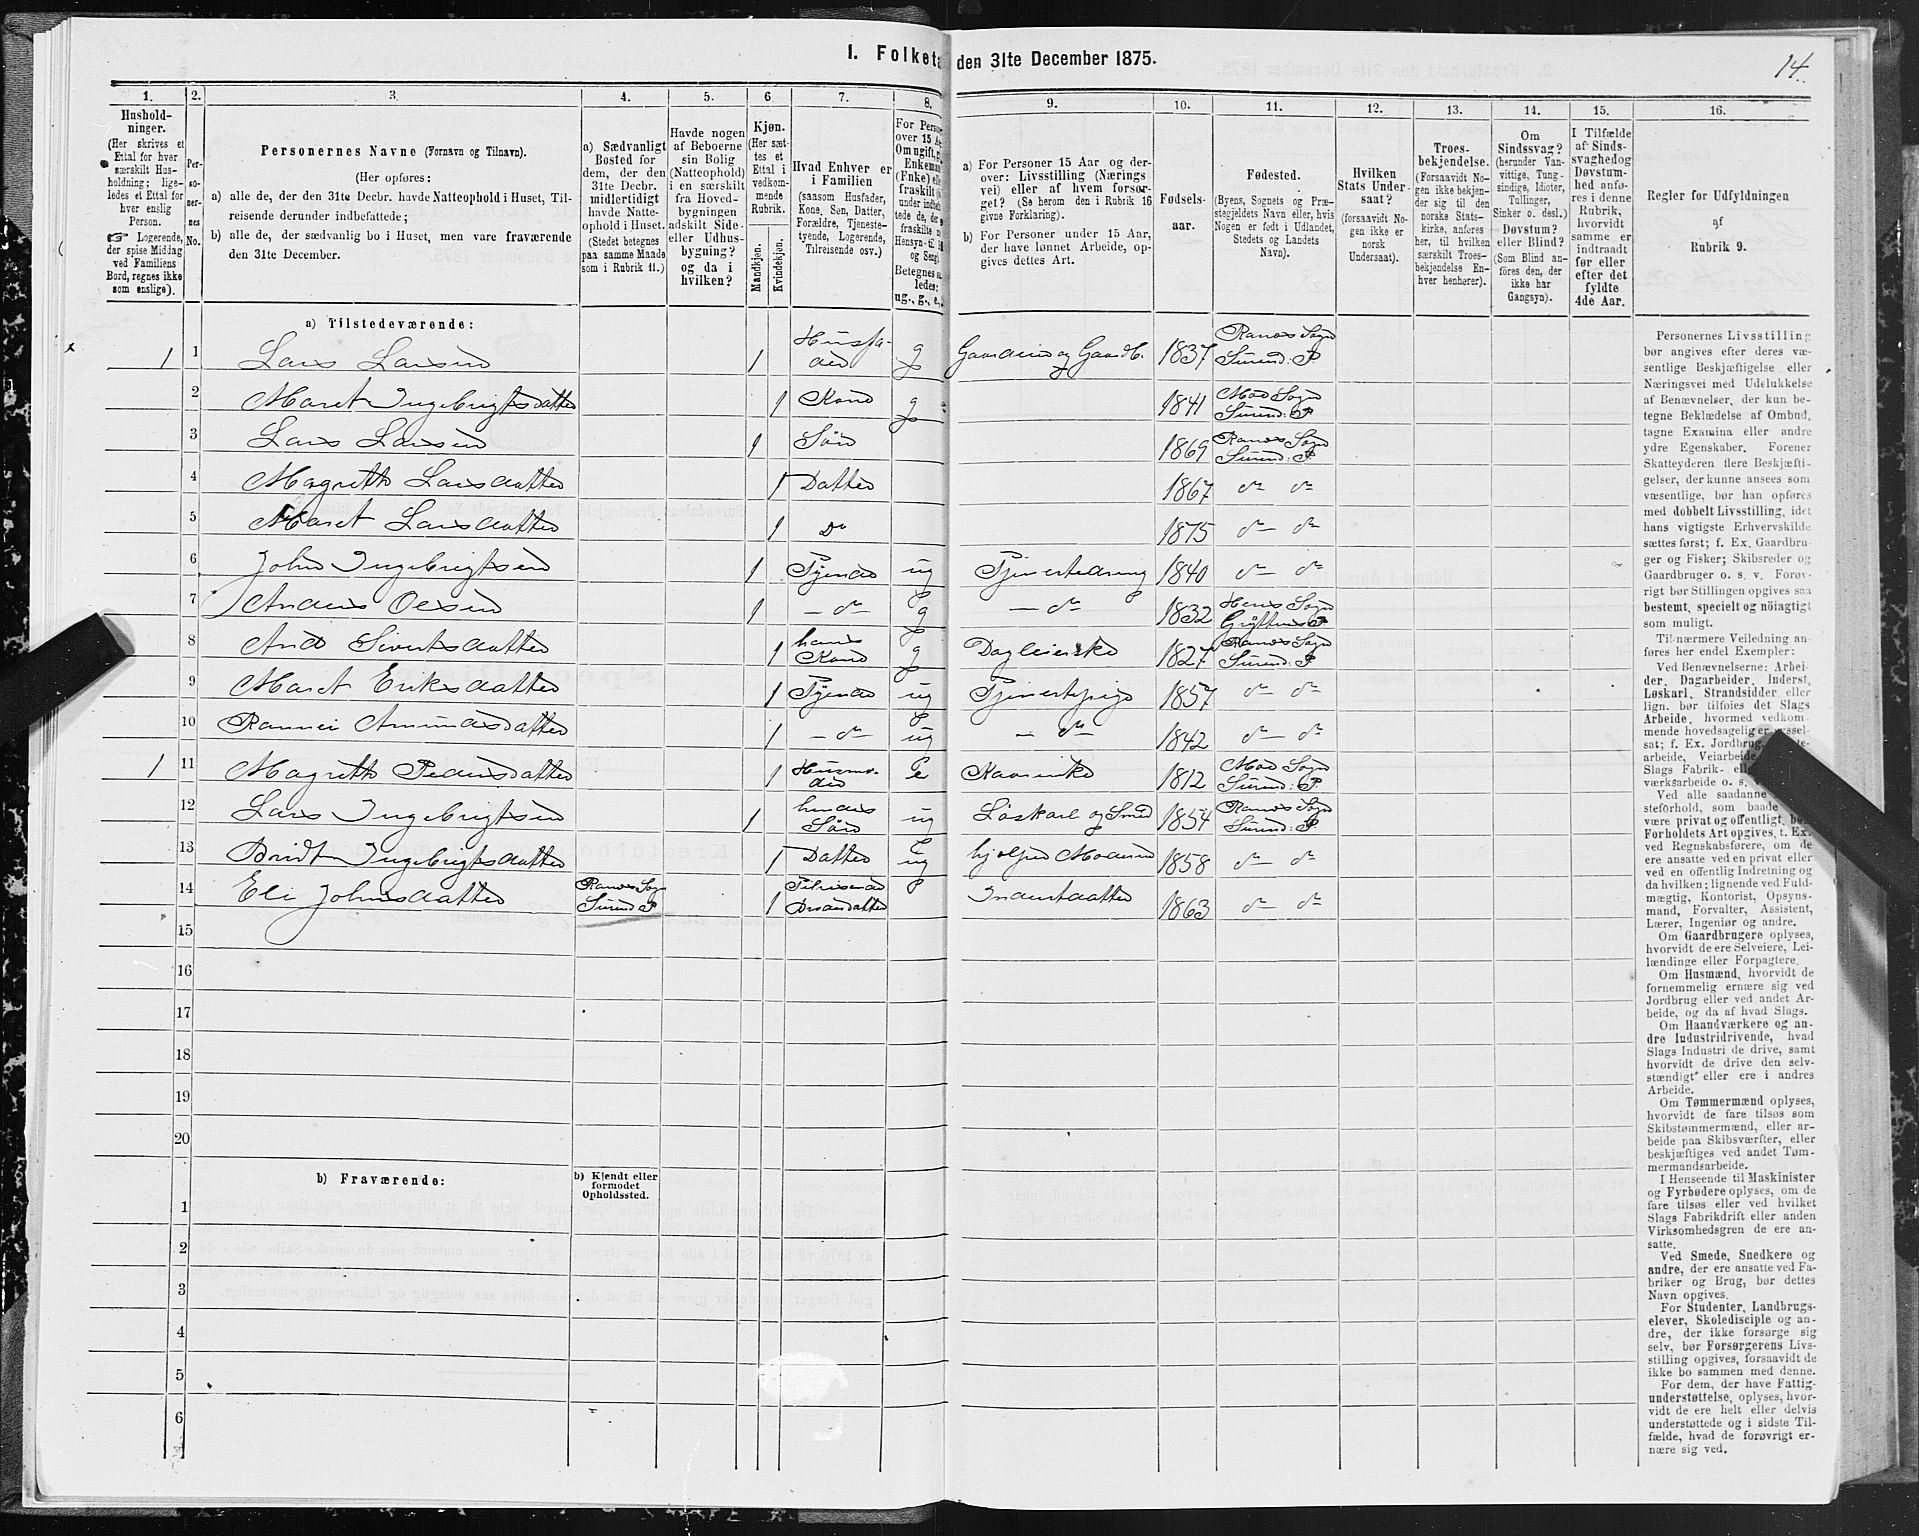 I. Folketæ den 31te December 1875.
14.
1.
Hushold-
ninger.
(Her skrives et
Ettal for hver
særskilt Hus-
holdning; lige-
ledes et Ettal for
hver enslig
Person.
☞ Logerende,
der spise Middag
ved Familiens
Bord, regnes ikke
som enslige).
2.
Per-
so-
ner-
nes
No.
3.
Personernes Navne (Fornavn og Tilnavn).
(Her opføres:
a) alle de, der den 31te Decbr. havde Natteophold i Huset, Til-
reisende derunder indbefattede;
b) alle de, der sædvanlig bo i Huset, men vare fraværende
den 31te December.
4.
a) Sædvanligt
Bosted for
dem, der den
31te Decbr.
midlertidigt
havde Natte-
ophold i Huset.
(Stedet betegnes
paa samme Maade
som i Rubrik 11.)
5.
Havde nogen
af Beboerne
sin Bolig
(Natteophold)
i en særskilt
fra Hoved-
bygningen
adskilt Side-
eller Udhus-
bygning?
og da i
hvilken?
6
Kjøn.
(Her sæt-
tes et
Ettal i
vedkom-
mende
Rubrik.
Mandkjøn.
Kvindekjøn.
7.
Hvad Enhver er
i Familien
(saasom Husfader,
Kone, Søn, Datter,
Forældre, Tjeneste-
tyende, Logerende,
Tilreisende osv.)
8.
For Perso
over 15 A
Om ugift,
Enkeman
(Enke) elle
fraskilt
tede de, der
fraskilte
Hensyn til
og Seng.
Betegnes
ledes:
ug., g., e.,
9.
a) For Personer 15 Aar og der-
over: Livsstilling (Nærings
vei) eller af hvem forsør-
get? (Se herom den i Rubrik 16
givne Forklaring).
b) For Personer under 15 Aar,
der have lønnet Arbeide, op-
gives dettes Art.
10.
Fødsels-
aar.
11.
Fødested.
(Byens, Sognets og Præ-
stegjeldets Navn eller, hvis
Nogen er født i Udlandet,
Stedets og Landets
Navn).
12.
Hvilken
Stats Under-
saat?
(forsaavidt No-
gen ikke er
norsk
Undersaat).
13.
Troes-
bekjendelse.
(Forsaavidt No-
gen ikke bekjen-
der sig til den
norske Stats-
kirke, anføres
her, til hvilken
særskilt Troes-
bekjendelse En-
hver henhører).
14.
Om
Sindssvag?
(herunder Van-
vittige, Tung-
sindige, Idioter,
Tullinger,
Sinker o. desl.)
Døvstum?
eller Blind?
(Som Blind an-
føres den, der
ikke har
Gangsyn).
15.
I Tilfælde
af Sinds-
svaghed og
Døvstum-
hed anfø-
res i denne
Rubrik,
hvorvidt
samme er
indtraadt
før eller
efter det
fyldte
4de Aar.
16.
Regler for Udfyldningen
af
Rubrik 9.
a) Tilstedeværende:
1 1 Lars Larsen 1 Husfa-der g Gaardeier og Gaardb. 1837 Ranes Sogn Surend: P.
2 Maret Ingebrigtsdatter 1 Kone g 1841 Moe Sogn Surend: P
3 Lars Larsen 1 Søn 1869 Ranes Sogn Surend: P
4 Magreth Larsdatter 1 Datter 1867 do do
5 Maret Larsdatter 1 Do 1875 do do
6 John Ingebrigtsen 1 Tyende ug Tjenestedreng 1840 do do
7 Anders Olsen 1 - do g - do 1832 Hens Sogn Gryttens P.
8 And Sivertsdatter 1 hans Kone g Dagleierske 1827 Ranes Sogn Surend: P
9 Maret Eriksdatter 1 Tyende ug Tjenestepige 1857 do do
10 Rannei Amundsdatter 1 - do - ug - do 1842 do do
1 11 Magreth Pedersdatter 1 Husmo-der e Kaarenke 1812 Moe Sogn Surend: P.
12 Lars Ingebrigtsen 1 hendes Søn ug Løskarl og Smed 1854 Ranes Sogn Surend: P.
13 Bridt Ingebrigtsdatter 1 Datter ug hjelper Moderen 1858 do do
14 Eli Johnsdatter Ranes Sogn Surend P 1 Tilreisende Brodersdatter Inderstdatter 1863 do do
15
16
17
18
19
20
b) Fraværende:
b) Kjendt eller
formodet
Opholdssted.
1
2
3
4
5
6
Personernes Livsstilling
bør angives efter deres væ-
sentlige Beskjæftigelse eller
Næringsvei med Udelukkelse
af Benævnelser, der kun be-
tegne Beklædelse af Ombud,
tagne Examina eller andre
ydre Egenskaber. Forener
Skatteyderen flere Beskjæfti-
gelser, der kunne ansees som
væsentlige, bør han opføres
med dobbelt Livsstilling, idet
hans vigtigste Erhvervskilde
sættes først; f. Ex. Gaardbru-
ger og Fisker; Skibsreder og
Gaardbruger o. s. v. Forøv-
rigt bør Stillingen opgives saa
bestemt, specielt og nöiagtigt
som muligt.
Til nærmere Veiledning an-
føres her endel Exempler:
Ved Benævnelserne: Arbei-
der, Dagarbeider, Inderst,
Løskarl, Strandsidder eller
lign. bør tilføies det Slags
Arbeide, hvormed vedkom-
mende hovedsagelig er syssel-
sat; f. Ex. Jordbrug, te-
arbeide, Veiarbeide
Slags Fabrik- ell
værksarbeide o. s.
Ved alle saadanne
steforhold, som baade
være privat og offentligt, bør
Forholdets Art opgives, t. Ex.
ved Regnskabsførere, om de
ere ansatte ved en privat eller
ved en offentlig Indretning og
da hvilken; lignende ved Fuld-
mægtig, Kontorist, Opsyns-
mand, Forvalter, Assistent,
Lærer, Ingeniør og andre.
Om Gaardbrugere oplyses,
hvorvidt de ere Selveiere, Lei-
lændinge eller Forpagtere.
Om Husmænd, hvorvidt de
fornemmelig ernære sig ved
Jordbrug eller ved andet Ar-
beide, og da af hvad Slags.
Om Haandværkere og an-
dre Industridrivende, hvad
Slags Industri de drive, samt
hvorvidt de drive den selv-
stændigt eller ere i andres
Arbeide.
Om Tømmermænd oplyses,
hvorvidt de fare tilsøs som
Skibstømmermænd, eller ar-
beide paa Skibsværfter, eller
beskjæftiges ved andet Tøm-
mermandsarbeide.
I Henseende til Maskinister
og Fyrbødere oplyses, om de
fare tilsøs eller ved hvilket
Slags Fabrikdrift eller anden
Virksomhedsgren de ere an-
satte.
Ved Smede, Snedkere og
andre, der ere ansatte ved Fa-
briker og Brug, bør dettes
Navn opgives.
For Studenter, Landbrugs-
elever, Skoledisciple og an-
dre, der ikke forsørge sig
selv, bør Forsørgerens Livs-
stilling opgives, forsaavidt de
ikke bo sammen med denne.
For dem, der have Fattig-
understøttelse, oplyses, hvor-
vidt de ere helt eller delvis
understøttede og i sidste Til-
fælde, hvad de forøvrigt er-
nære sig ved.